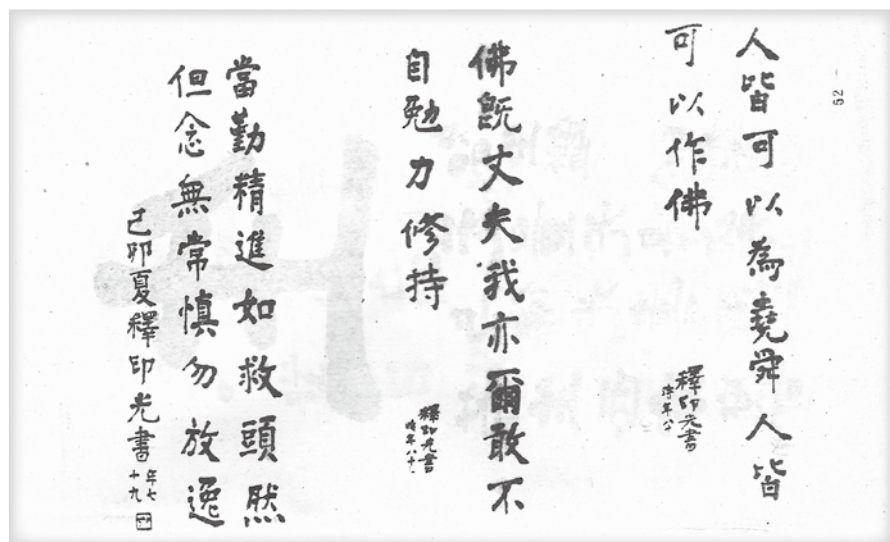 52
人皆可以為堯舜人皆
可以作佛
釋印光書
時年八十
佛既丈夫我亦爾敢不
自勉力修持
釋印光書
時年八十
當勤精進如救頭然
但念無常慎勿放逸
己卯夏釋印光書
年七
十九